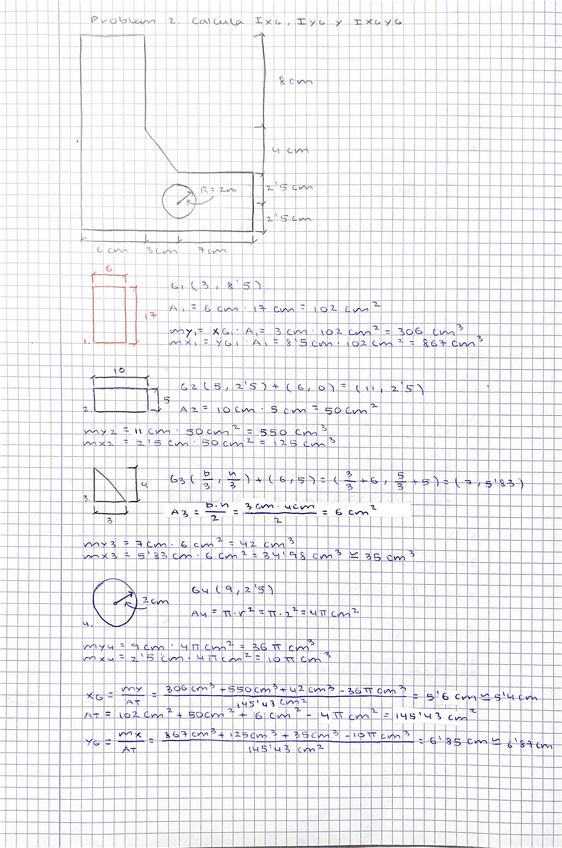 Problem 2. Calcula IxG, IyG y IxGyG
8 cm
4 cm
R = 2m
2'5 cm
2'5 cm
6 cm 3 cm 7 cm
6
G1 (3, 8'5)
A1 = 6 cm · 17 cm = 102 cm²
17
my1 = xG1 · A1 = 3 cm · 102 cm² = 306 cm³
1. mx1 = yG1 · A1 = 8'5 cm · 102 cm² = 867 cm³
10
G2 (5, 2'5) + (6, 0) = (11, 2'5)
5
2. A2 = 10 cm · 5 cm = 50 cm²
my2 = 11 cm · 50 cm² = 550 cm³
mx2 = 2'5 cm · 50 cm² = 125 cm³
G3 (b/3, h/3) + (6, 5) = (3/3 + 6, 5/3 + 5) = (7, 5'83)
4
3. A3 = b·h/2 = 3 cm · 4 cm/2 = 6 cm²
3
my3 = 7 cm · 6 cm² = 42 cm³
mx3 = 5'83 cm · 6 cm² = 34'98 cm³ ≃ 35 cm³
G4 (9, 2'5)
2 cm
A4 = π · r² = π · 2² = 4π cm²
4.
my4 = 9 cm · 4π cm² = 36 π cm³
mx4 = 2'5 cm · 4π cm² = 10 π cm³
xG = my/AT = 306 cm³ + 550 cm³ + 42 cm³ - 36π cm³/145'43 cm² = 5'6 cm ≃ 5'4 cm
AT = 102 cm² + 50 cm² + 6 cm² - 4π cm² = 145'43 cm²
yG = mx/AT = 867 cm³ + 125 cm³ + 35 cm³ - 10π cm³/145'43 cm² = 6'85 cm ≃ 6'87 cm